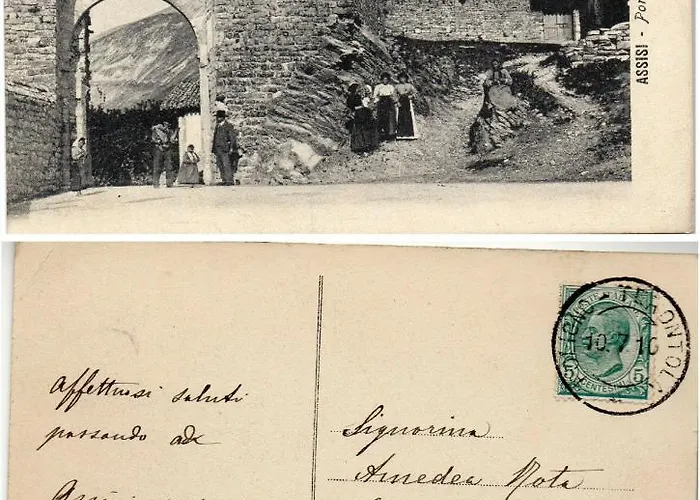 ASSISI - Por
Affettuosi saluti
passando ad
Signorina
Amedea Nota
10.7.10
5 5
CENTESIMI